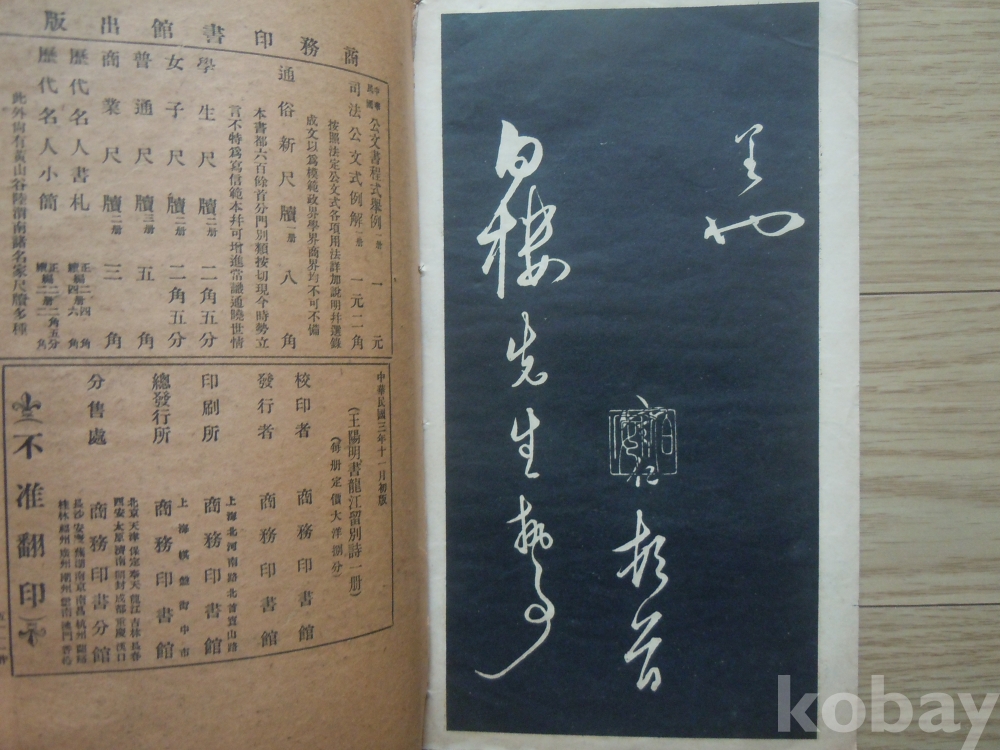 至也
守仁頓首
白樓先生執事
商務印書館出版
中華民國公文書程式舉例 一册 一元
司法公文式例解 一册 一元二角
按照法定公文式各項用法詳加說明幷選錄
成文以爲模範政界學界商界均不可不備
通俗新尺牘 一册 八角
本書都六百餘首分門別類按切現今時勢立
言不特爲寫信範本幷可增進常識通曉世情
學生尺牘 二册 二角五分
女子尺牘 二册 二角五分
普通尺牘 三册 五角
商業尺牘 二册 三角
歷代名人書札
歷代名人小簡
此外尙有黃山谷陸渭南諸名家尺牘多種
中華民國三年十一月初版
(王陽明書龍江留別詩一册)
(每册定價大洋捌分)
校印者 商務印書館
發行者 商務印書館
上海北河南路北首寶山路
印刷所 商務印書館
上海棋盤街中市
總發行所 商務印書館
北京天津保定奉天龍江吉林長春
西安太原濟南開封成都重慶漢口
分售處 商務印書分館
不准翻印
kobay